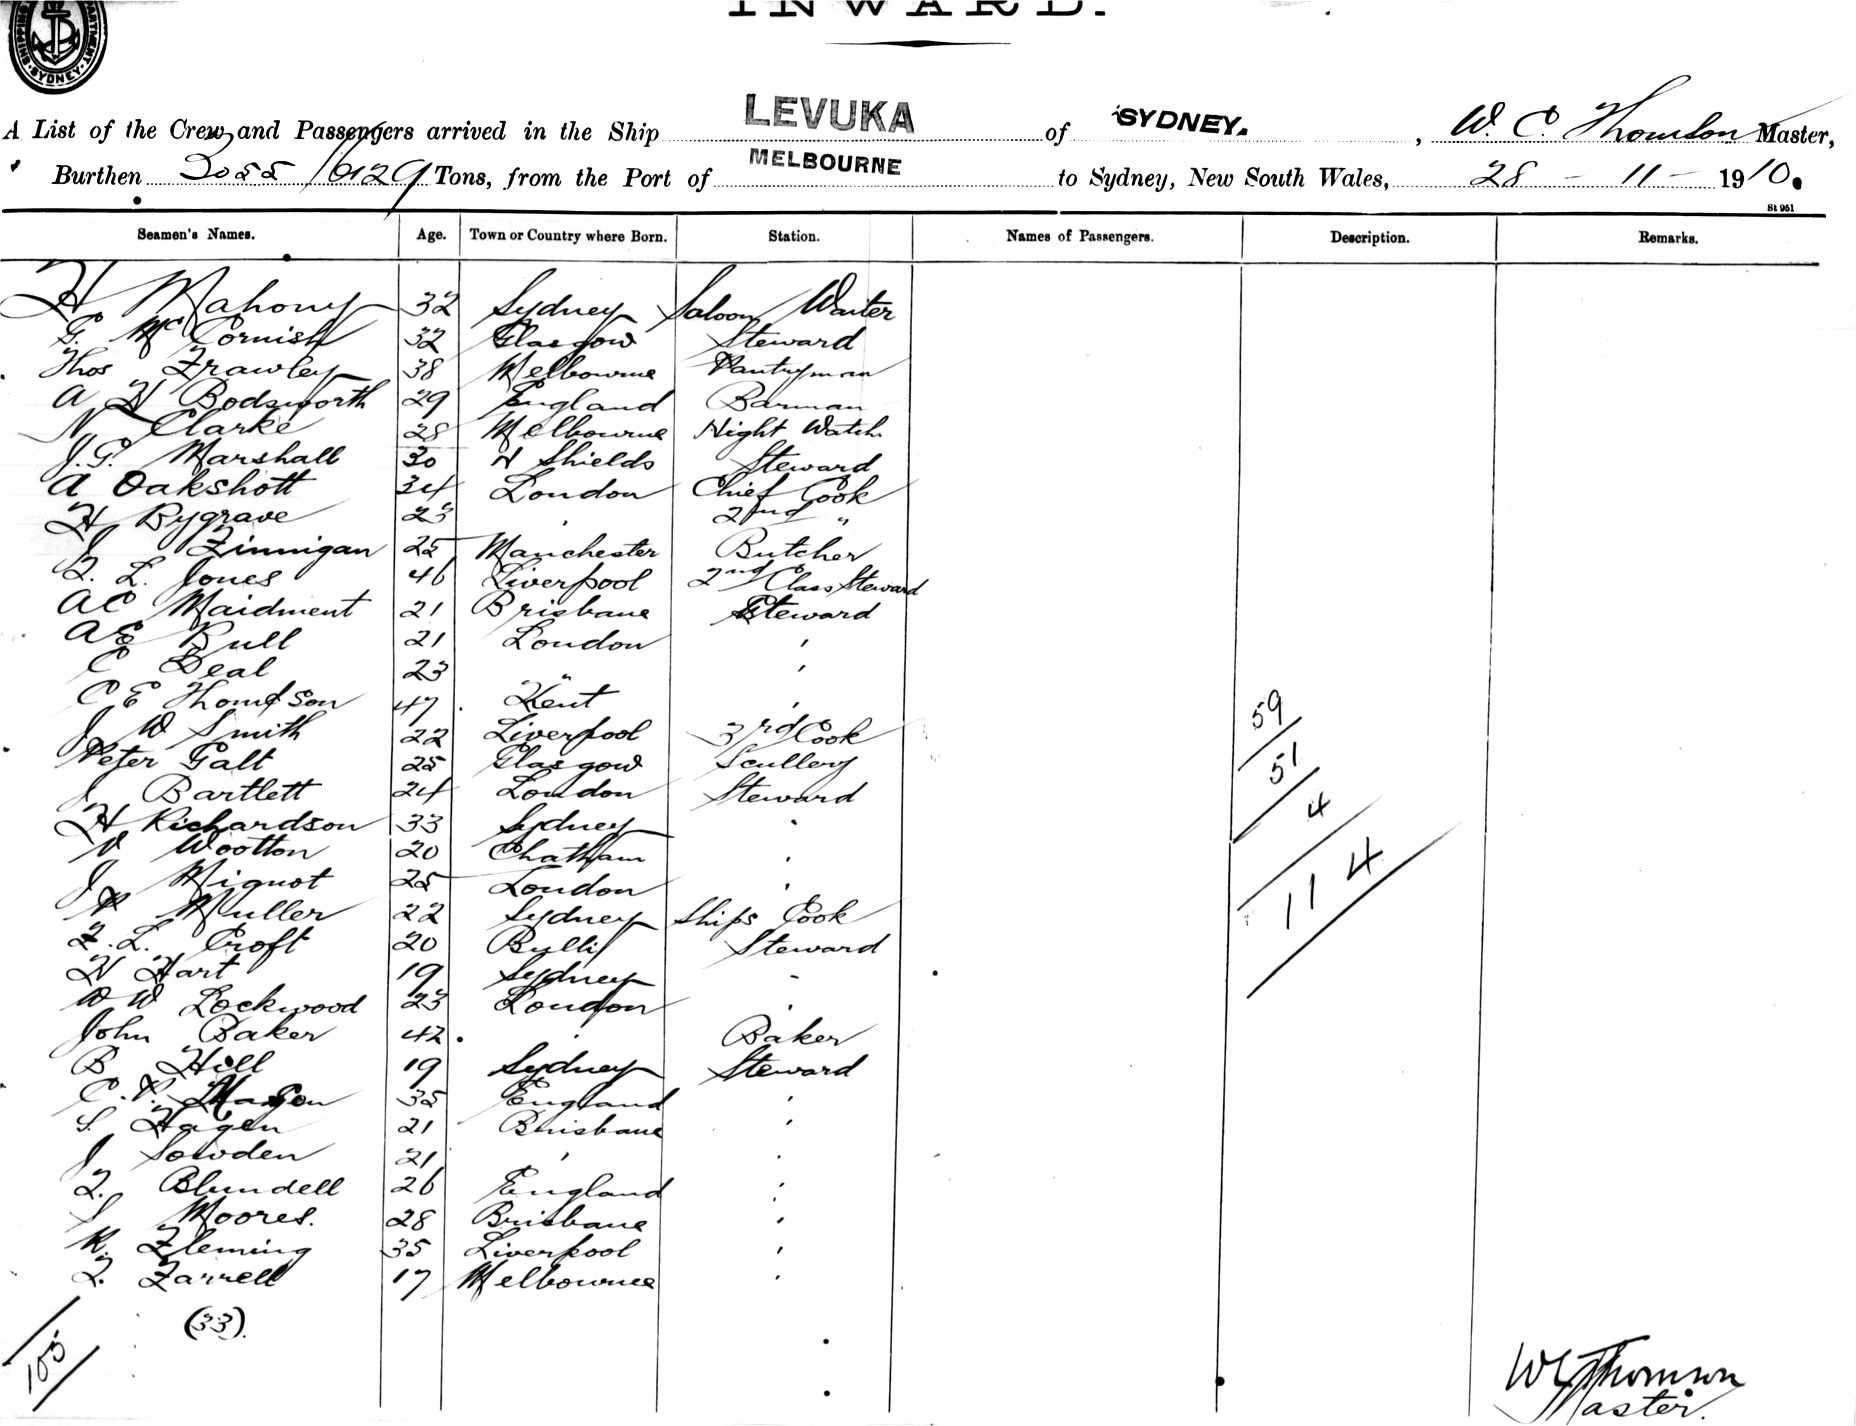 INWARD.
SHIPPING DEPARTMENT. SYDNEY.
A List of the Crew and Passengers arrived in the Ship LEVUKA of SYDNEY. , W. C. Thomson Master,
Burthen 3055 / 6129 Tons, from the Port of MELBOURNE to Sydney, New South Wales, 28 - 11 - 1910.
St 951
Seamen's Names. Age. Town or Country where Born. Station. Names of Passengers. Description. Remarks.
H Mahony 32 Sydney Saloon Waiter
G. McCornish 32 Glasgow Steward
Thos Frawley 38 Melbourne Pantryman
A H Bodsworth 29 England Barman
N Clarke 28 Melbourne Night Watch
J. G. Marshall 30 N Shields Steward
A Oakshott 34 London Chief Cook
H Bygrave 23 " 2nd "
J Finnigan 25 Manchester Butcher
F. L. Jones 46 Liverpool 2nd Class Steward
AC Maidment 21 Brisbane Steward
AE Bull 21 London "
C Deal 23 " "
C E Thomson 47 Kent "
J W Smith 22 Liverpool 3rd Cook
Peter Galt 25 Glasgow Scullery
J Bartlett 24 London Steward
H Richardson 33 Sydney "
V Wootton 20 Chatham "
J Mignot 25 London "
Muller 22 Sydney Ships Cook
F. L. Croft 20 Bulli Steward
H Hart 19 Sydney "
W W Lockwood 23 London "
John Baker 42 " Baker
B Hill 19 Sydney Steward
C. Mason 35 England "
S. Hagen 21 Brisbane "
J Sowden 21 " "
F. Blundell 26 England "
S Moores. 28 Brisbane "
K. Fleming 35 Liverpool "
F. Farrell 17 Melbourne "
(33).
105
59
51
4
114
WC Thomson
Master.